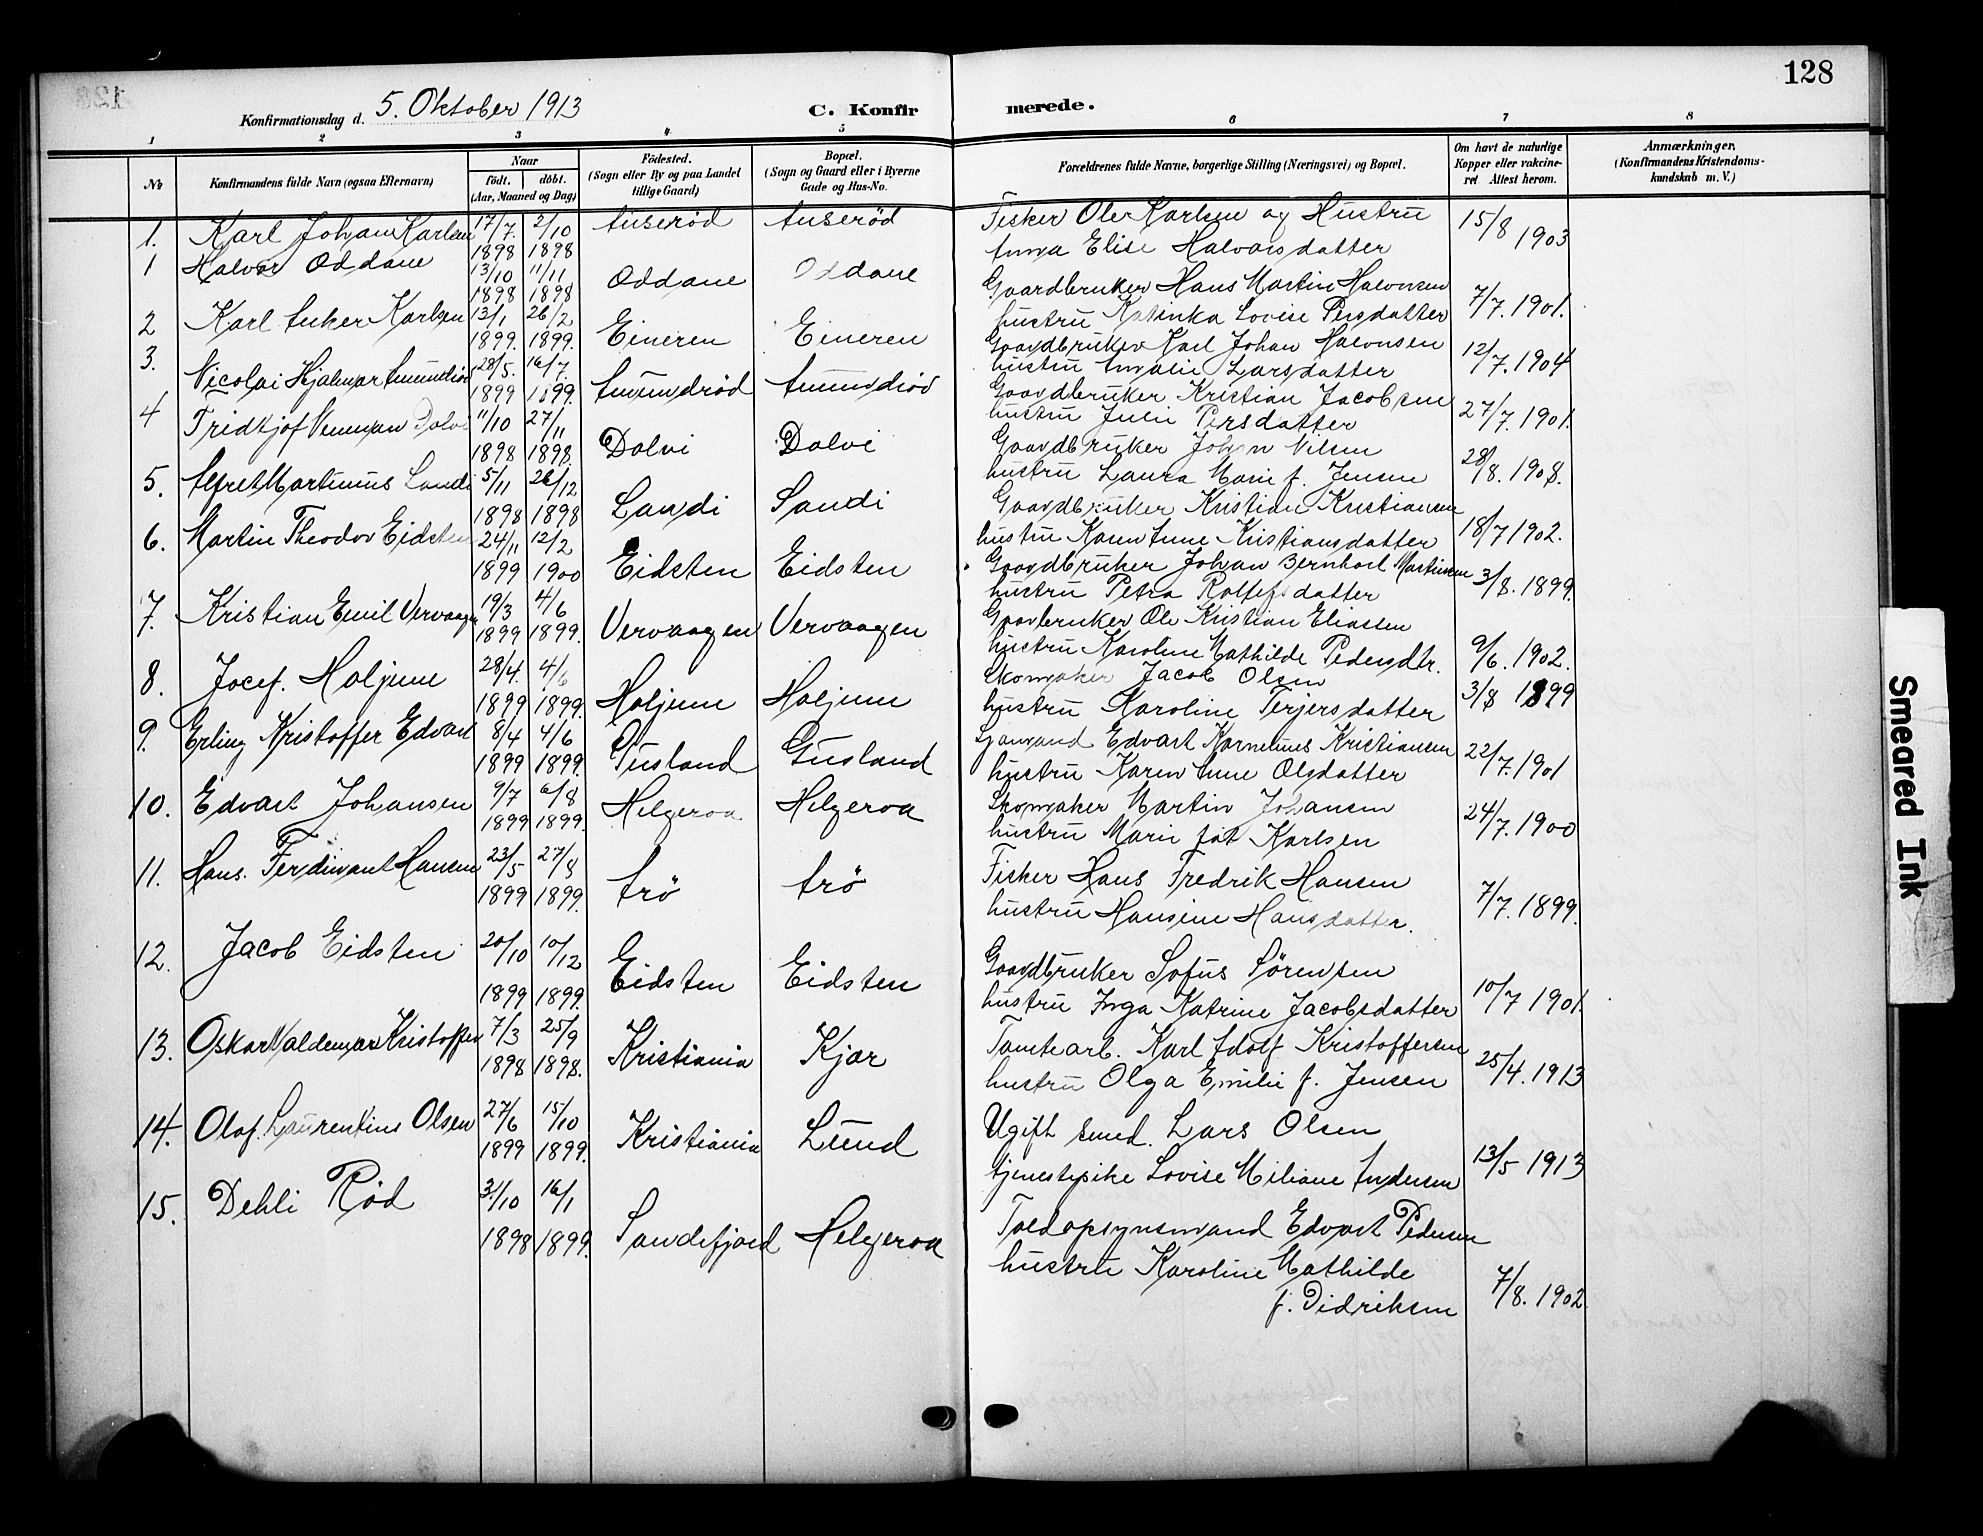 128
Konfirmationsdag d. 5. Oktober 1913
C. Konfirmerede.
1 2 3 4 5 6 7 8
No
Konfirmandens fulde Navn (ogsaa Efternavn)
Naar
födt. döbt.
(Aar, Maaned og Dag)
Födested.
(Sogn eller By og paa Landet
tillige Gaard)
Bopæl.
(Sogn og Gaard eller i Byerne
Gade og Hus-No.
Forældrenes fulde Navne, borgerlige Stilling (Næringsvei) og Bopæl.
Om havt de naturlige
Kopper eller vakcine-
ret Attest herom.
Anmærkninger.
(Konfirmandens Kristendoms-
kundskab m. V.)
1. Karl Johan Karlsen 17/7 1898 2/10 1898 Auseröd Auseröd Fisker Ole Karlsen og Hustru
Anna Elise Halvorsdatter 15/8 1903
1 Halvor Oddane 13/10 1898 11/11 1898 Oddane Oddane Gaardbruker Hans Martin Halvorsen
hustru Katinka Lovise Persdatter 7/7. 1901.
2 Karl Anker Karlsen 13/1 1899. 26/2 1899. Eineren Eineren Gaardbruker Karl Johan Halvorsen
hustru Amalie Larsdatter 12/7. 1904
3. Nicolai Hjalmar Amundröd 28/5. 1899 16/7 1899. Amundröd Amundröd Gaardbruker Kristian Jacobsen
hustru Julie Persdatter 27/7. 1901.
4 Fridtjof Venman Dolvi 11/10 1898 27/11 1898 Dolvi Dolvi Gaardbruker Johan Nilsen
hustru Laura Marie f. Jensen 28/8. 1908.
5. Alfret Martinius Sandi 5/11 1898 26/12 1898 Sandi Sandi Gaardbruker Kristian Kristiansen
hustru Karen Anne Kristiansdatter 18/7 1902.
6. Martin Theodor Eidsten 24/11 1899 12/2 1900 Eidsten Eidsten Gaardbruker Johan Bernhard Martinsen
hustru Petra Rolfsdatter 3/8. 1899.
7. Kristian Emil Vervaagen 19/3 1899 4/6 1899. Vervaagen Vervaagen Gaarbruker Ole Kristian Eliassen
hustru Karoline Mathilde Pedersdtr. 9/6. 1902.
8. Josef. Holjune 28/4. 1899 4/6 1899. Holjune Holjune Skomaker Jacob Olsen
hustru Karoline Terjersdatter 3/8 1899
9. Erling Kristoffer Edvart 8/4 1899 4/6 1899. Gusland Gusland Sjömand Edvart Kornelius Kristiansen
hustru Karen Anne Olsdatter 22/7. 1901
10. Edvart Johansen 9/7 1899 6/8 1899. Helgeroa Helgeroa Skomaker Martin Johansen
hustru Marie föt Karlsen 24/7. 1900
11. Hans. Ferdinant Hansen 23/5 1899 27/8 1899. Arö Arö Fisker Hans Fredrik Hansen
hustru Hansine Hansdatter. 7/7. 1899.
12. Jacob Eidsten 20/10 1899 10/12 1899. Eidsten Eidsten Gaardbruker Sofus Sörensen
hustru Inga Katrine Jacobsdatter 10/7 1901.
13. Oskar Valdemar Kristoffersen 7/3 1898 25/9 1898. Kristiania Kjær Tomtearb. Karl Adolf Kristoffersen
hustru Olga Emilie f. Jensen 25/4. 1913
14. Olaf. Laurentius Olsen 27/6 1899 15/10 1899. Kristiania Lund Ugift smed. Lars Olsen
tjenestepike Lovise Miliane Andersen 13/5 1913
15. Dehli Röd 31/10 1898 16/1 1899. Sandefjord Helgeroa Toldopsynsmand Edvart Pedersen
hustru Karoline Mathilde
f. Didriksen 7/8. 1902
Smeared Ink